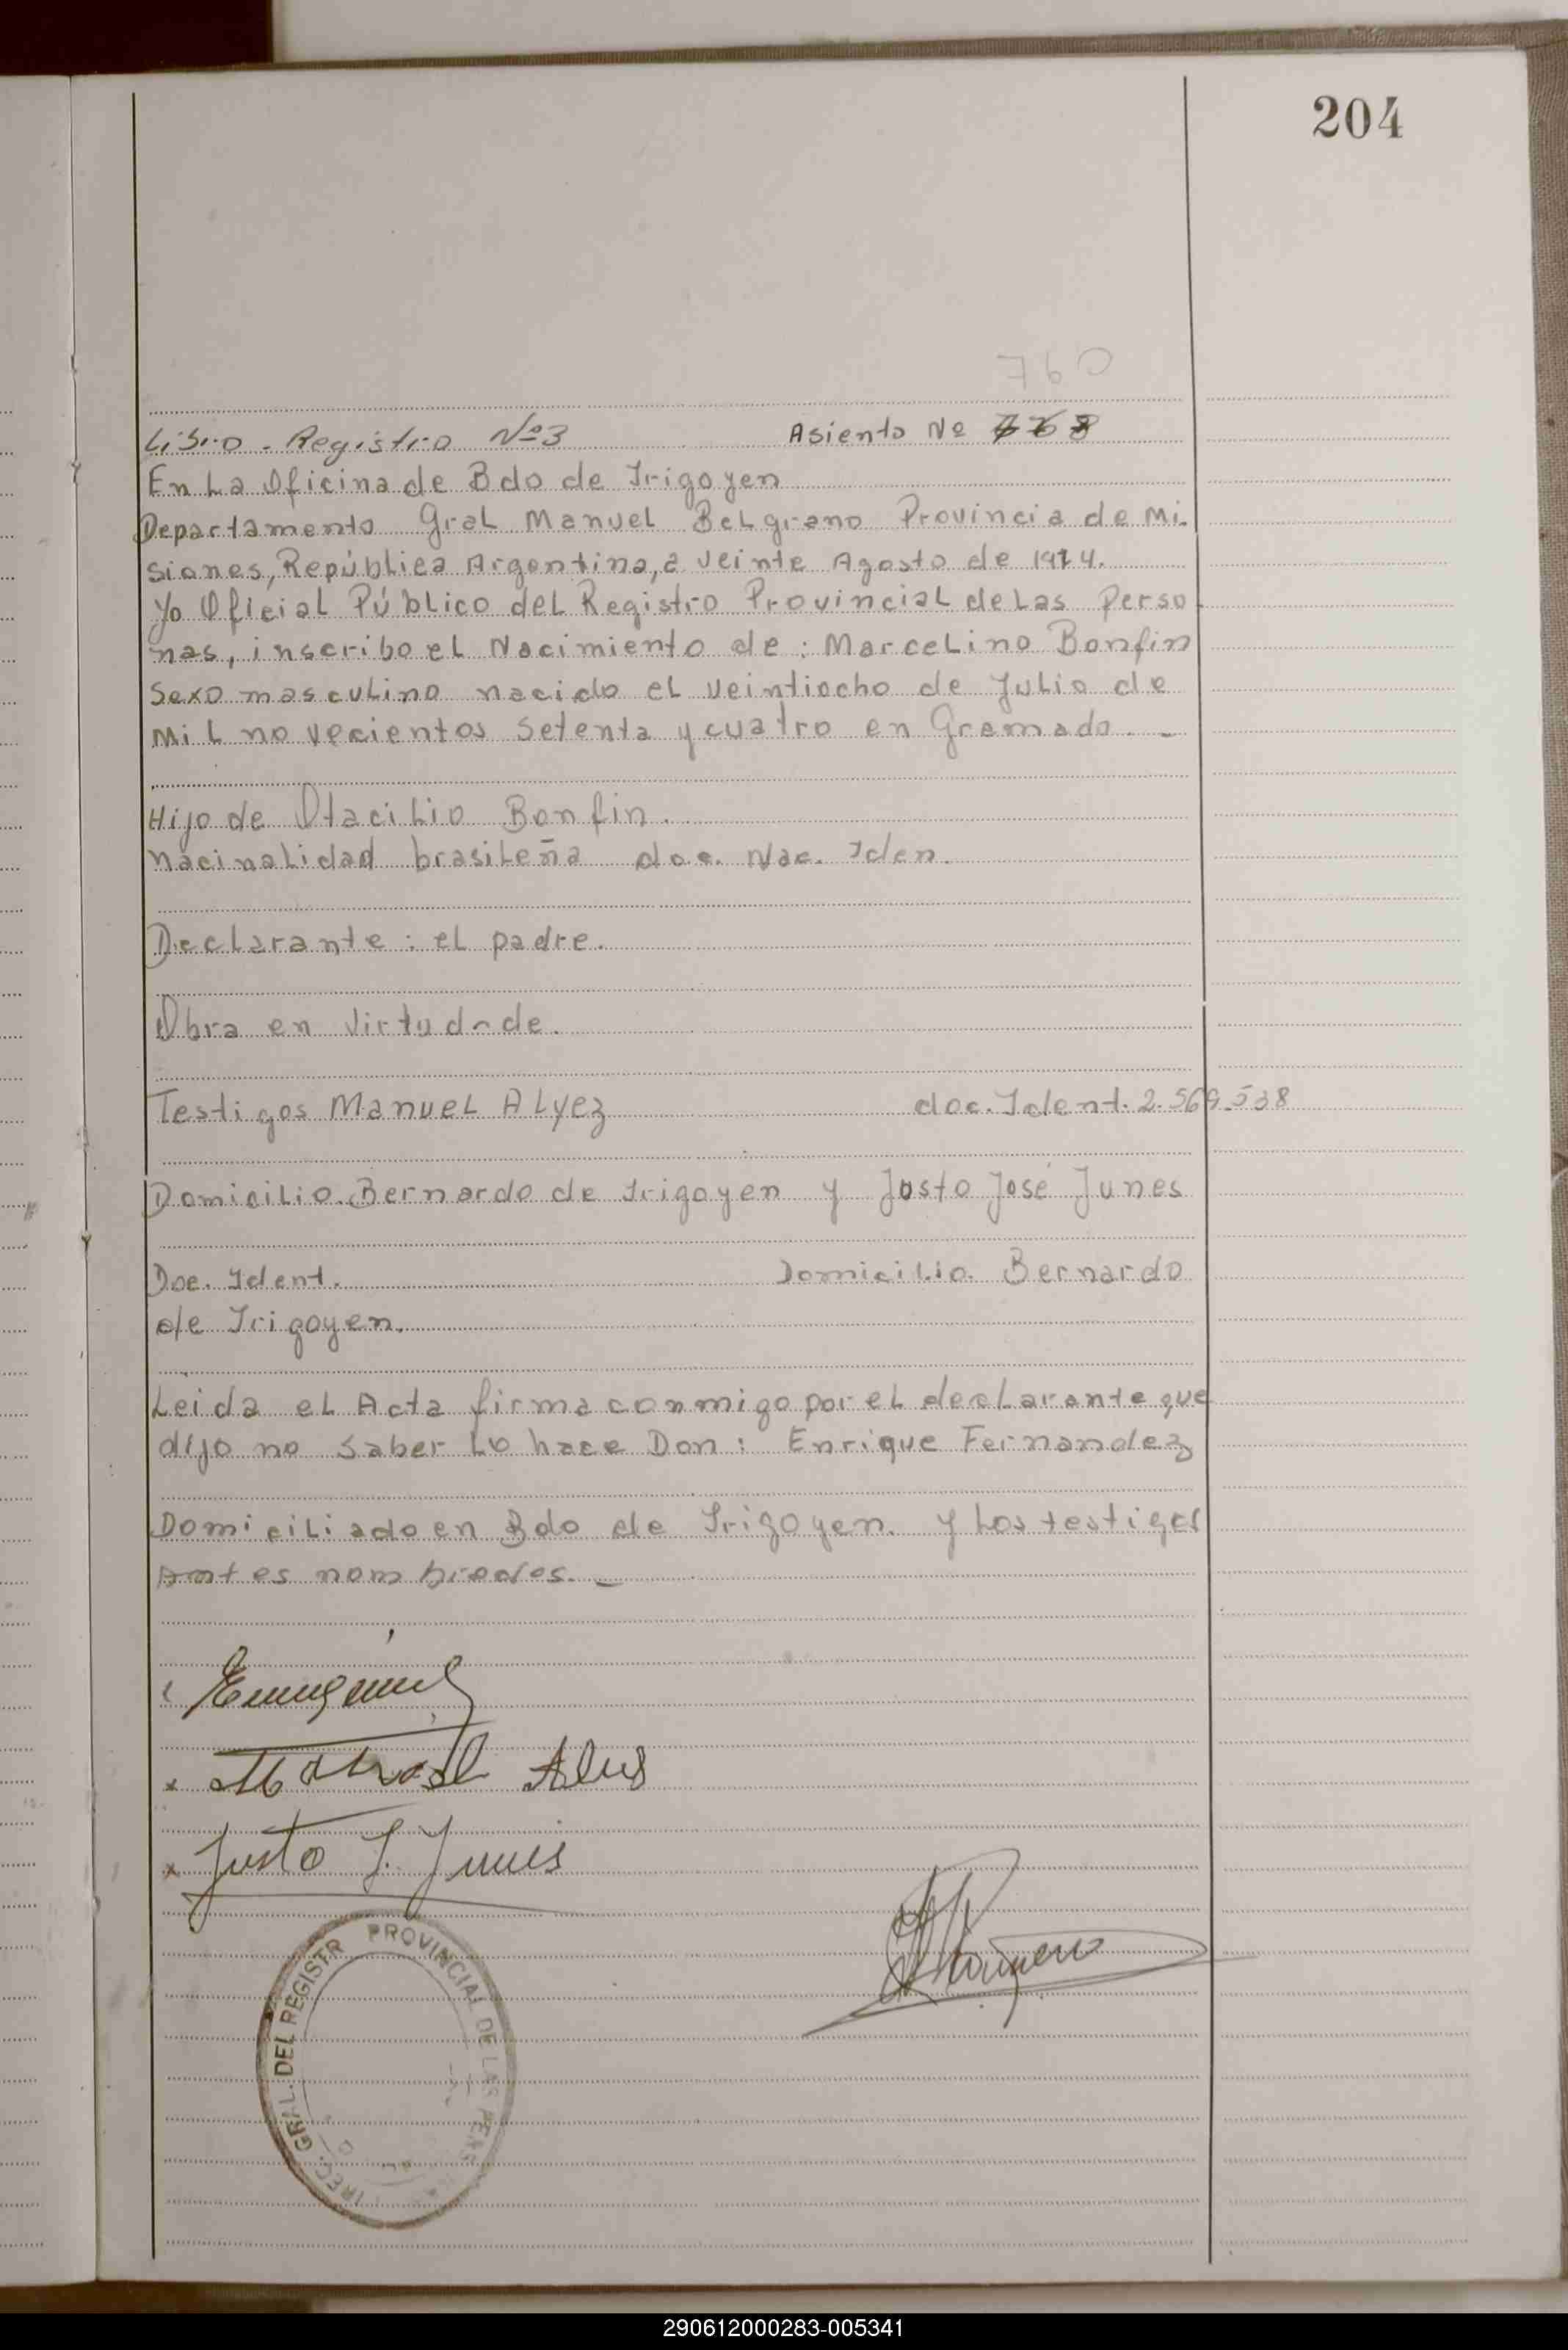 204
760
Libro - Registro Nº 3 Asiento Nº 768
En La Oficina de Bdo de Irigoyen
Departamento Gral Manuel Belgrano Provincia de Mi-
siones, República Argentina, a veinte Agosto de 1974.
Yo Oficial Público del Registro Provincial de Las Perso
nas, inscribo el Nacimiento de: Marcelino Bonfin
Sexo masculino nacido el veintiocho de Julio de
Mil novecientos Setenta y cuatro en Gramado. -
Hijo de Otacilio Bonfin.
nacinalidad brasileña doc. Nac. Iden.
Declarante: el padre.
Obra en virtud-de.
Testigos Manuel Alvez doc. Ident. 2.569.538
Domicilio. Bernardo de Irigoyen y Justo José Junes
Doc. Ident. Domicilio. Bernardo
de Irigoyen.
Leida el Acta firma conmigo por el declarante que
dijo no saber Lo hace Don: Enrique Fernandez
Domiciliado en Bdo de Irigoyen. y Los testigos
antes nombrados. -
Alves
Justo J. Junes
DIREC. GRAL. DEL REGISTR PROVINCIAL DE LAS PERS
290612000283-005341